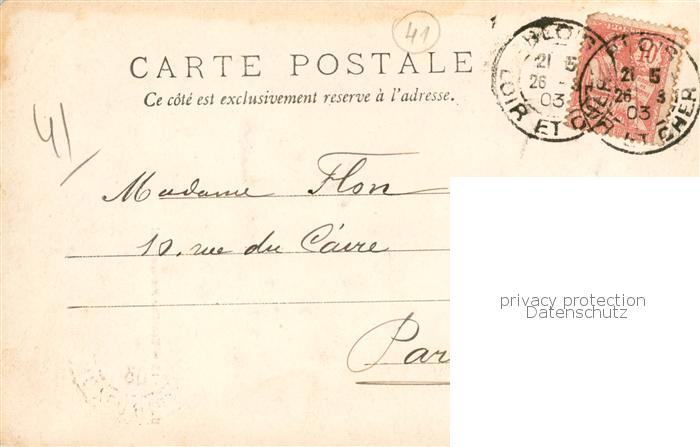 41
CARTE POSTALE
Ce côté est exclusivement reserve à l'adresse.
BLOIS
21 5
26 - 3
03
LOIR ET CHER
10
BLOIS
21 5
26 3
03
LOIR ET CHER
41
Madame Flon
10, rue du Caire
Par
privacy protection
Datenschutz
03